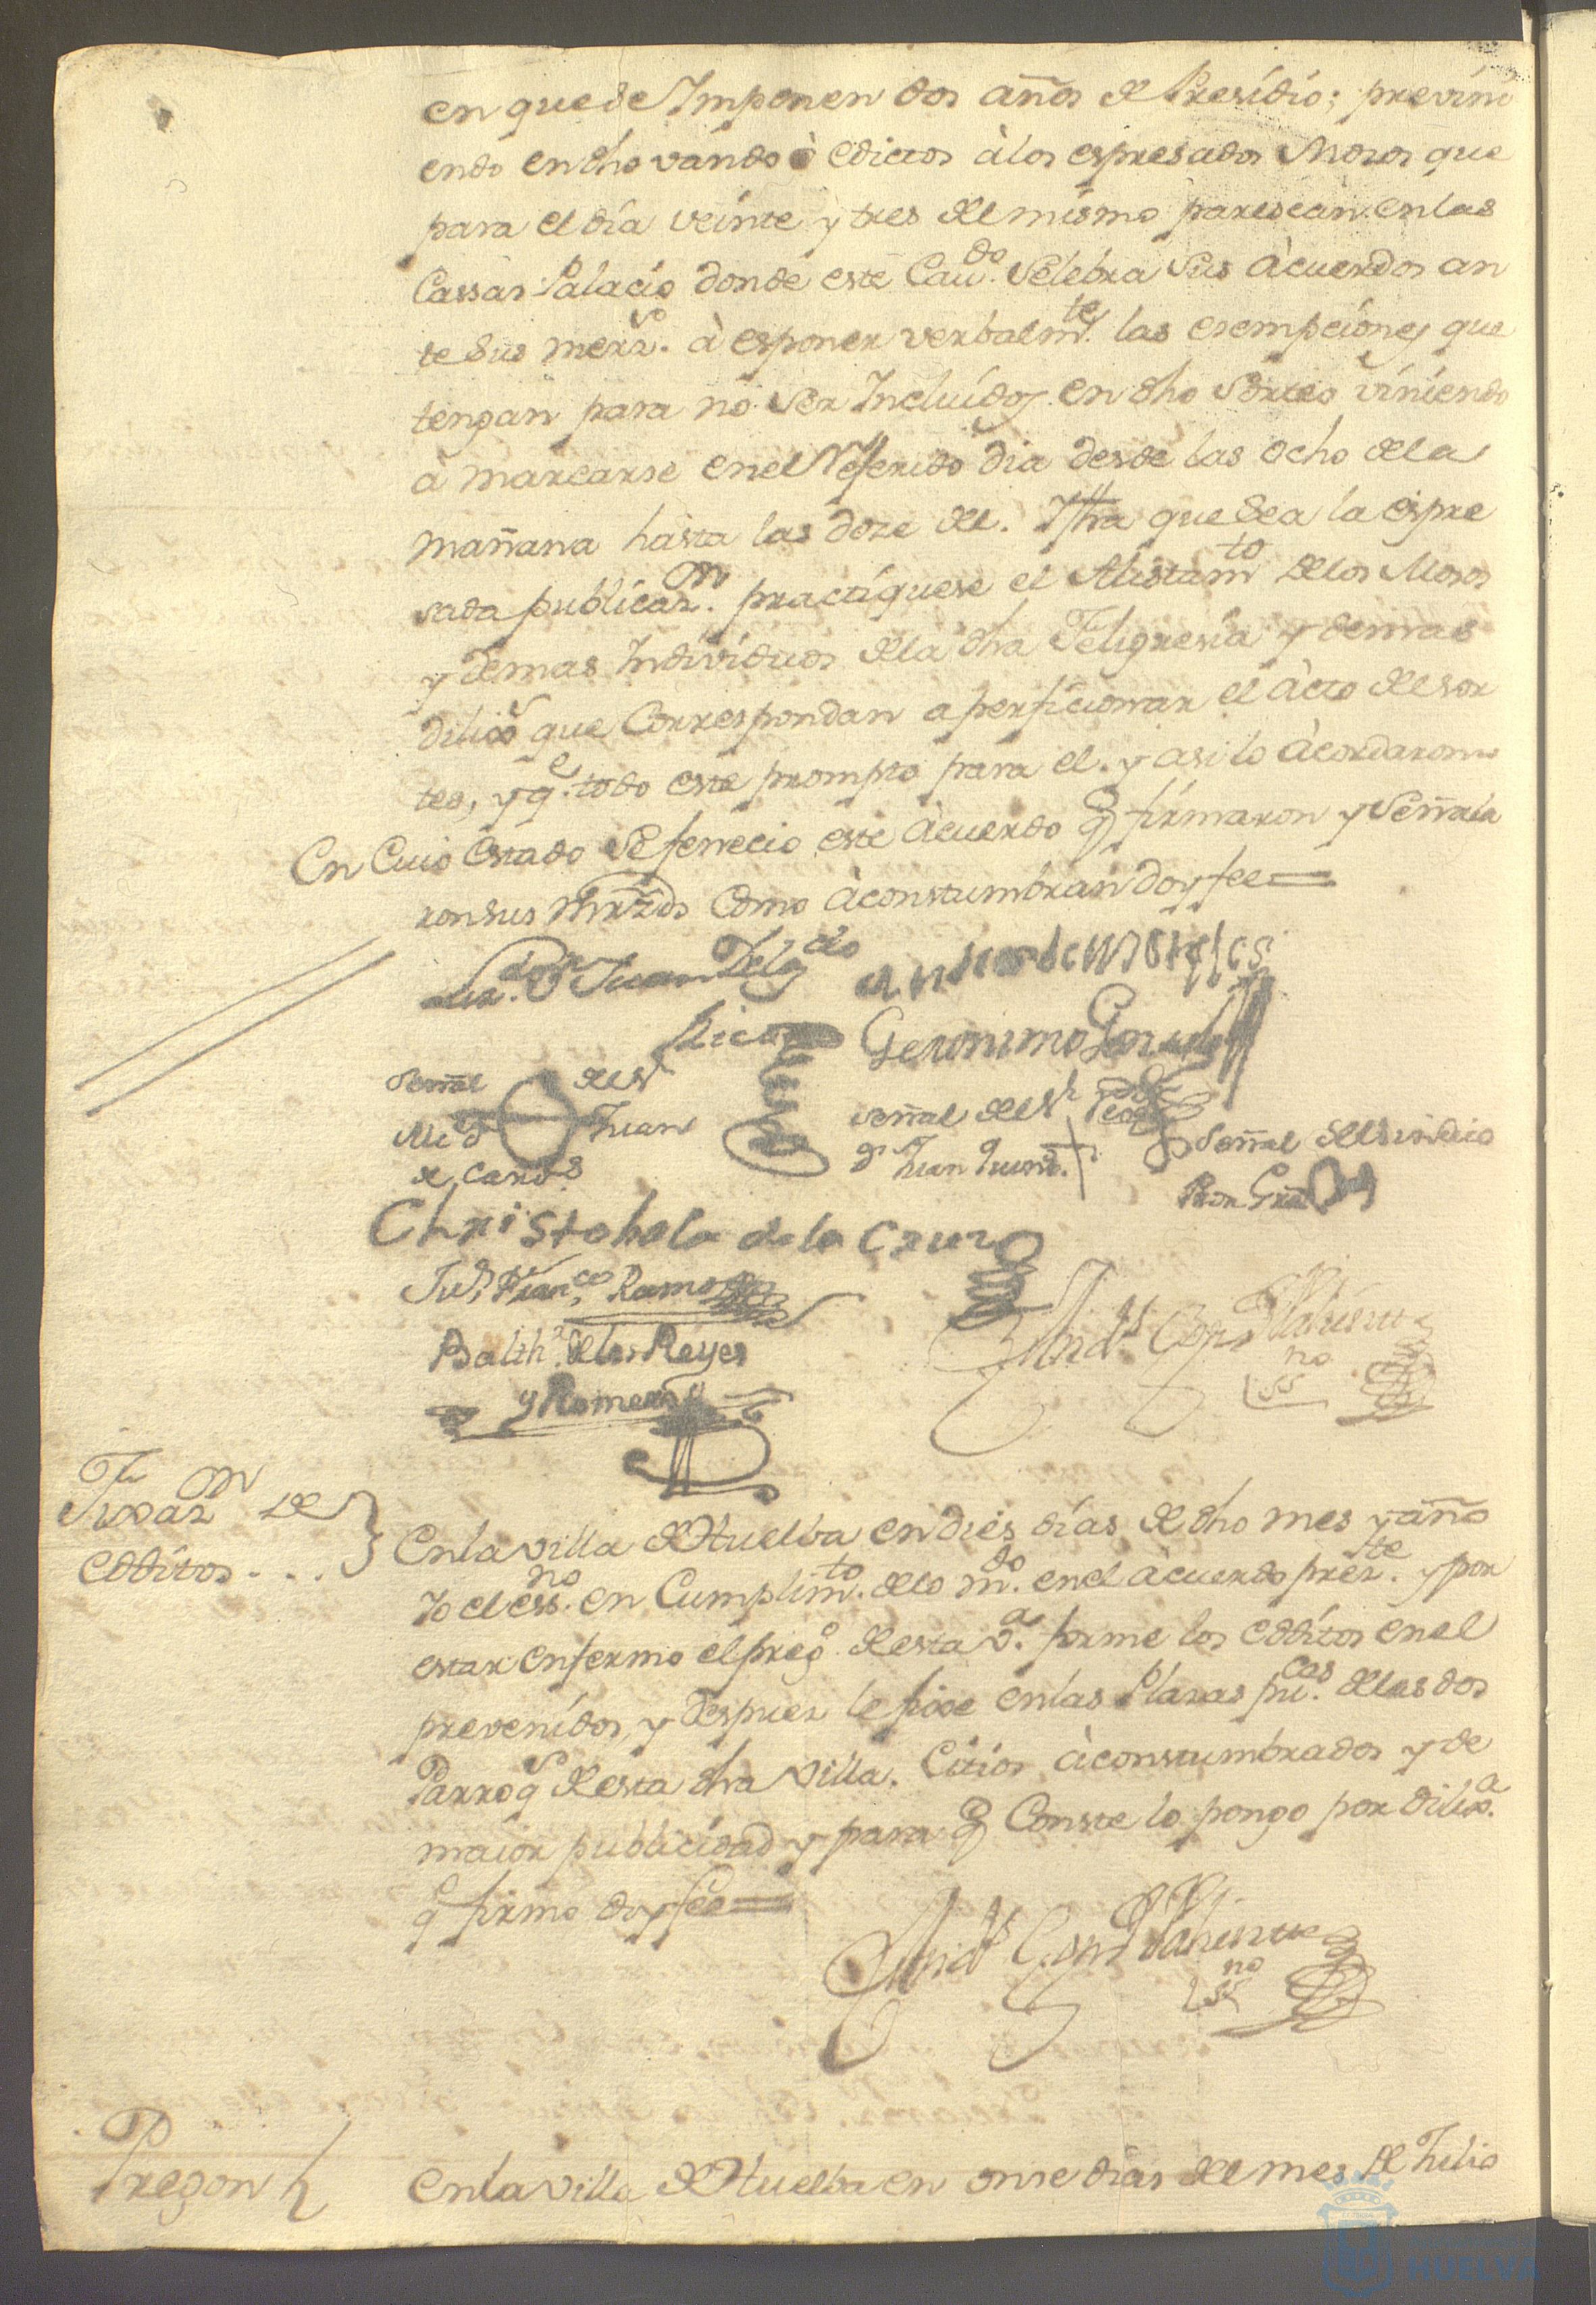 en que se Imponen dos años de Presidio; previni
endo en dho vando ò edictos à los espresados Mosos que
para el día veinte y tres del mismo paresean en las
Cassas Palacio donde este Cavdo. Selebra sus àcuerdos an
te sus merzs. à esponer verbalmte. las esempciones que
tengan para no ser Incluídos en dho Sorteo viniendo
à marcarse en el Referido dia desde las ocho de la
mañana hasta las doze de el. Ittra que sea la espre
sada publicazn. practíquese el Alistamto de los Mosos
y demas Indivíduos de la dha Feligresía y demas
diligs que Correspondan a perficionar el àcto de sor
teo, y qe. todo este prompto para el. y asi lo àcordaron
En Cuio Estado Se fenecio este àcuerdo q firmaron y Señala
ron sus Mrzds Como àconstumbran doy fee=
Lizdo. Dn Juan Delgdo
Rico
Geronimo
Señal del Sr
Juan
Señal del Sr
Juan
Señal del Sindico
Pror Gral
Christobal de la Cruz
Franco. Ramos
Balthr. de los Reyes
y Romero
Andrs
ssno
Fixazn de
Edditos...
En la Villa de Huelba en dies días de dho mes y año
Yo el essno. en Cumplimto. de lo mdo. en el àcuerdo preste. y por
estar enfermo el prego. de esta va. forme los Eddítos en el
prevenídos, y despues le fixe en las Plazas pucas. de las dos
Parroqs de esta dha Villa. Citios àconstumbrados y de
maior publicidad y para q Conste lo pongo por diliga.
q firmo doy fee=
Andrs
ssno
Pregon
En la Villa de Huelba en onse días del mes de Julio
HUELVA